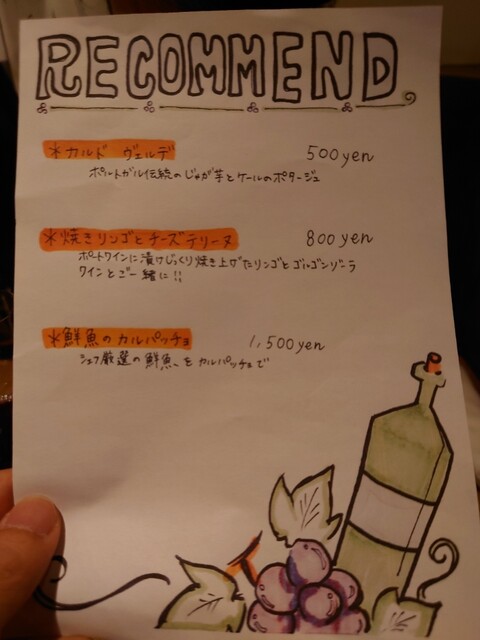 RECOMMEND
*カルド ヴェルデ 500yen
ポルトガル伝統のじゃが芋とケールのポタージュ
*焼きリンゴとチーズテリーヌ 800yen
ポートワインに漬けじっくり焼き上げたリンゴとゴルゴンゾーラ
ワインとご一緒に!!
*鮮魚のカルパッチョ 1,500yen
シェフ厳選の鮮魚、をカルパッチョで